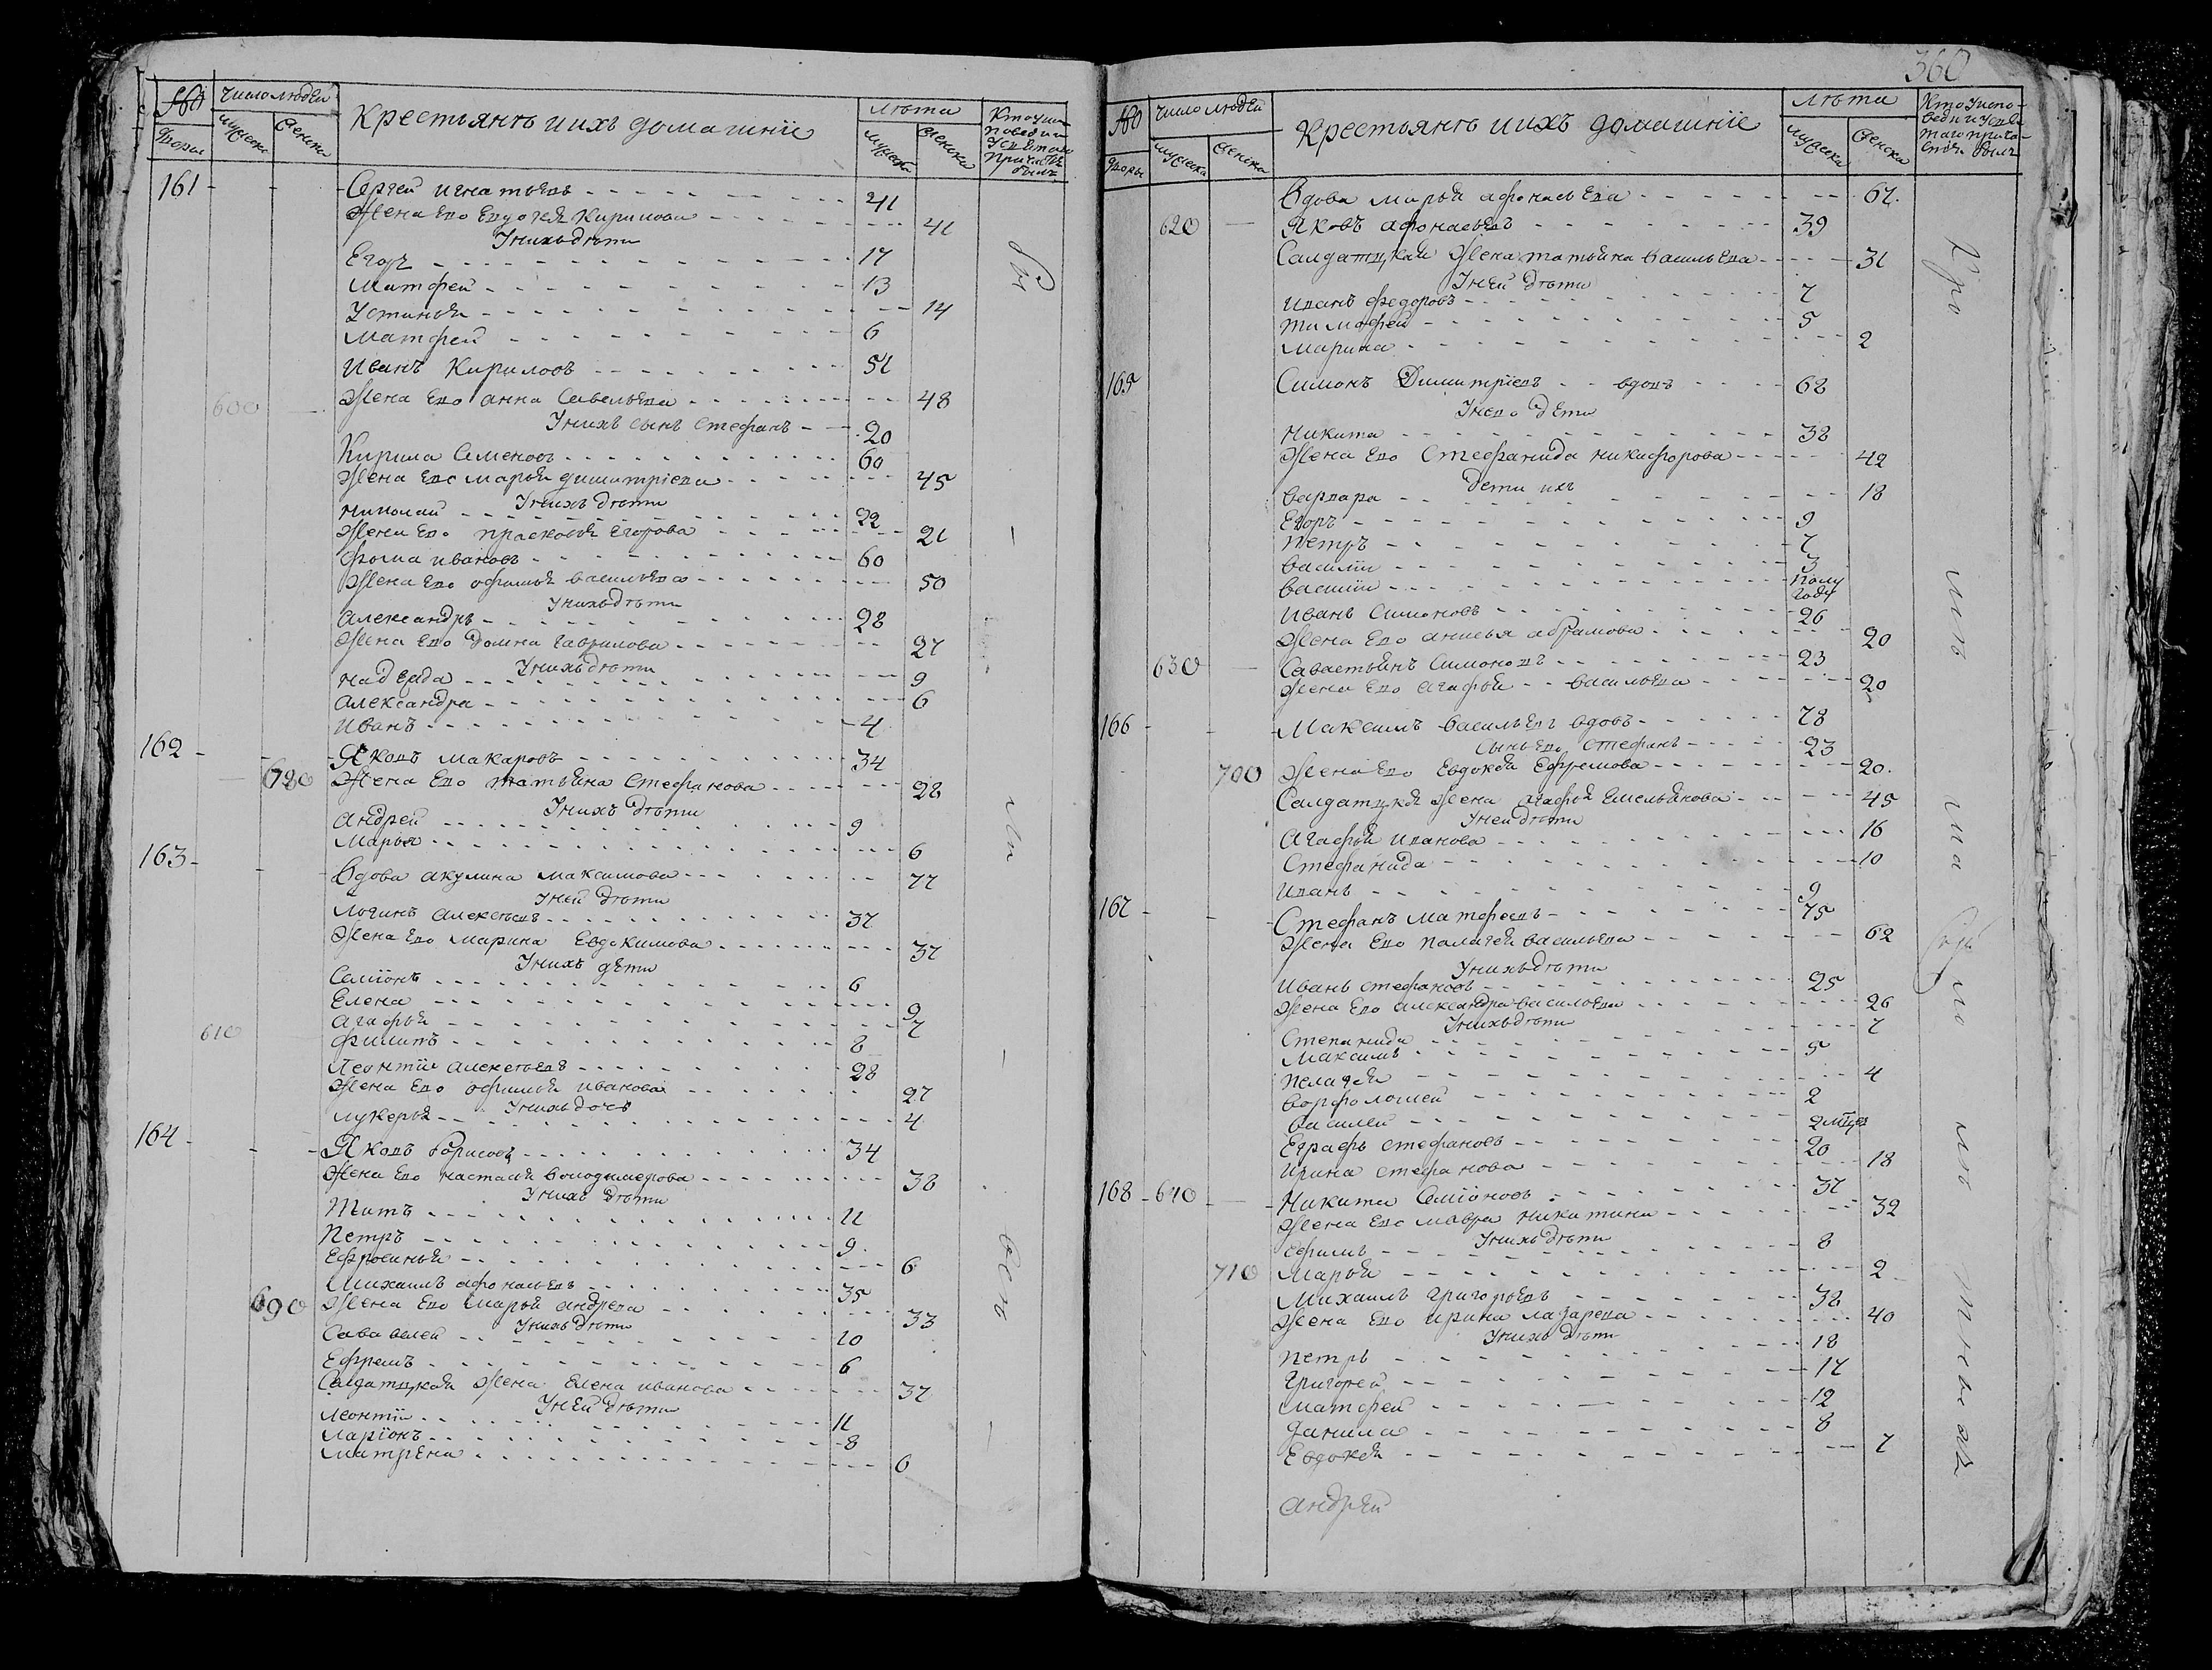 № Число людей Крестьянъ и ихъ домашніе Лѣта
дворы мужска женска мужска женска
161 Сергей игнатьевъ 41
Жена Ево Евдокея Кирилова 41
У нихъ дѣти
Егоръ 17
Матфей 13
Устинья 14
Матфей 6
Иванъ Кириловъ 51
600 Жена Ево анна Савельева 48
У нихъ сынъ Стефанъ 20
Кирила Семеновъ 60
Жена Ево марья димитріева 45
У нихъ дѣти
николай 22
Жена Ево прасковья Егорова 21
фома ивановъ 60
Жена Ево офимья васильева 50
У нихъ дѣти
александръ 28
Жена Ево домна гаврилова 27
У нихъ дѣти
надежда 9
александра 6
Иванъ 4
162 Яковъ макаровъ 34
680 Жена Ево татьяна Стефанова 28
У нихъ дѣти
андрей 9
Марья 6
163 Вдова акулина максимова 77
У ней дѣти
логинъ алексѣевъ 37
Жена Ево марина Евдокимова 37
У нихъ дети
Семіонъ 6
Елена 9
агафья 7
610 филипъ 8
Леонтіи алексѣевъ 28
Жена Ево офимья иванова 27
У нихъ дочь
лукерья 4
164 Яковъ борисовъ 34
Жена Ево настасья володимерова 38
У нихъ дѣти
Титъ 11
Петръ 9
Ефросинья 6
Михаилъ афонасьевъ 35
690 Жена Ево марья андрева 33
У нихъ дѣти
Сававелей 10
Ефремъ 6
Салдатцкая Жена Елена иванова 37
У ней дѣти
леонтіи 11
ларіонъ 8
матрена 6
360
№ Число людей Крестьянъ и ихъ домашніе Лѣта
дворы мужска женска мужска женска
Вдова марья афонасьева 67
620 Яковъ афонасьевъ 39
Салдатцкая Жена татьяна васильева 31
У ней дѣти
иванъ федоровъ 7
тимофей 5
марина 2
165 Симонъ Димитріевъ вдовъ 68
У нево дети
никита 38
Жена Ево Стефанида никифорова 42
дети ихъ
варвара 18
Егоръ 9
петръ 7
василіи 3
василіи полу году
иванъ Симоновъ 26
Жена Ево анисья абрамова 20
630 Савастьянъ Симоновъ 23
Жена Ево агафья васильева 20
166 Максимъ васильевъ вдовъ 78
сынъ Ево Стефанъ 23
700 Жена Ево Евдокея Ефремова 20
Салдатцкая Жена агафья Емельянова 45
У ней дѣти
Агафья иванова 16
Стефанида 10
иванъ 9
167 Стефанъ матфеевъ 75
Жена Ево палагея васильева 62
У нихъ дѣти
иванъ стефановъ 25
Жена Ево александра васильева 26
У нихъ дѣти
Степанида 7
Максимъ 5
пелагея 4
ворфоломей 2
василей 2 мѣца
Еграфъ стефановъ 20
ирина стефанова 18
168 640 Никита Семіоновъ 37
Жена Ево мавра никитина 32
У нихъ дѣти
Ефимъ 8
710 Марья 2
Михаилъ григорьевъ 38
Жена Ево ирина лазарева 40
У нихъ дѣти
петръ 18
григорей 17
матфей 12
данила 8
Евдокея 7
андрей